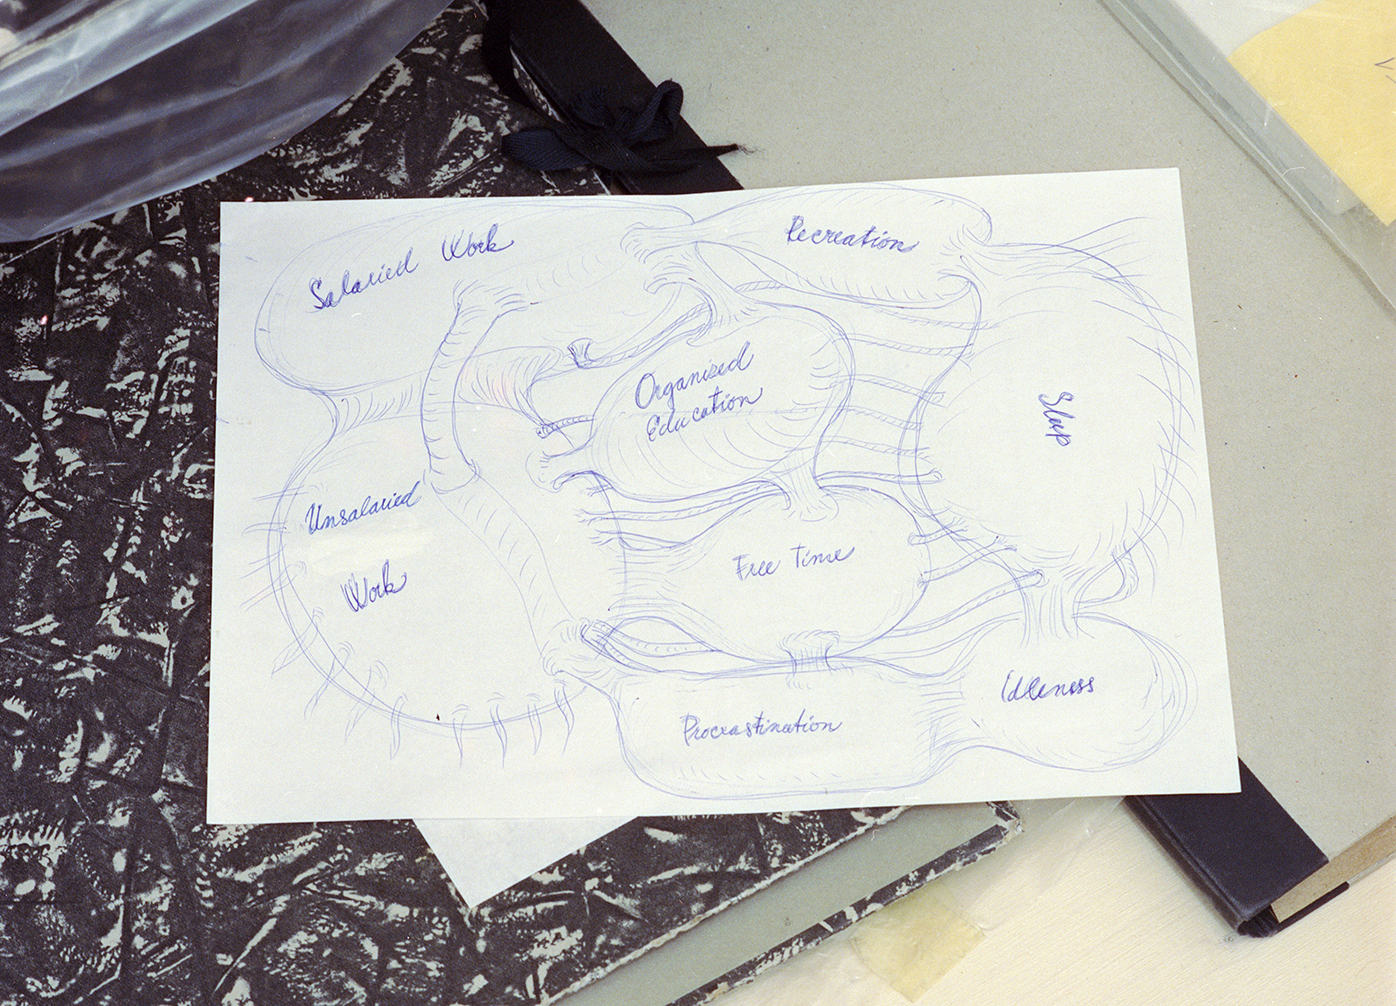 Salaried Work
Recreation
Organized
Education
Sleep
Unsalaried
Work
Free Time
Idleness
Procrastination